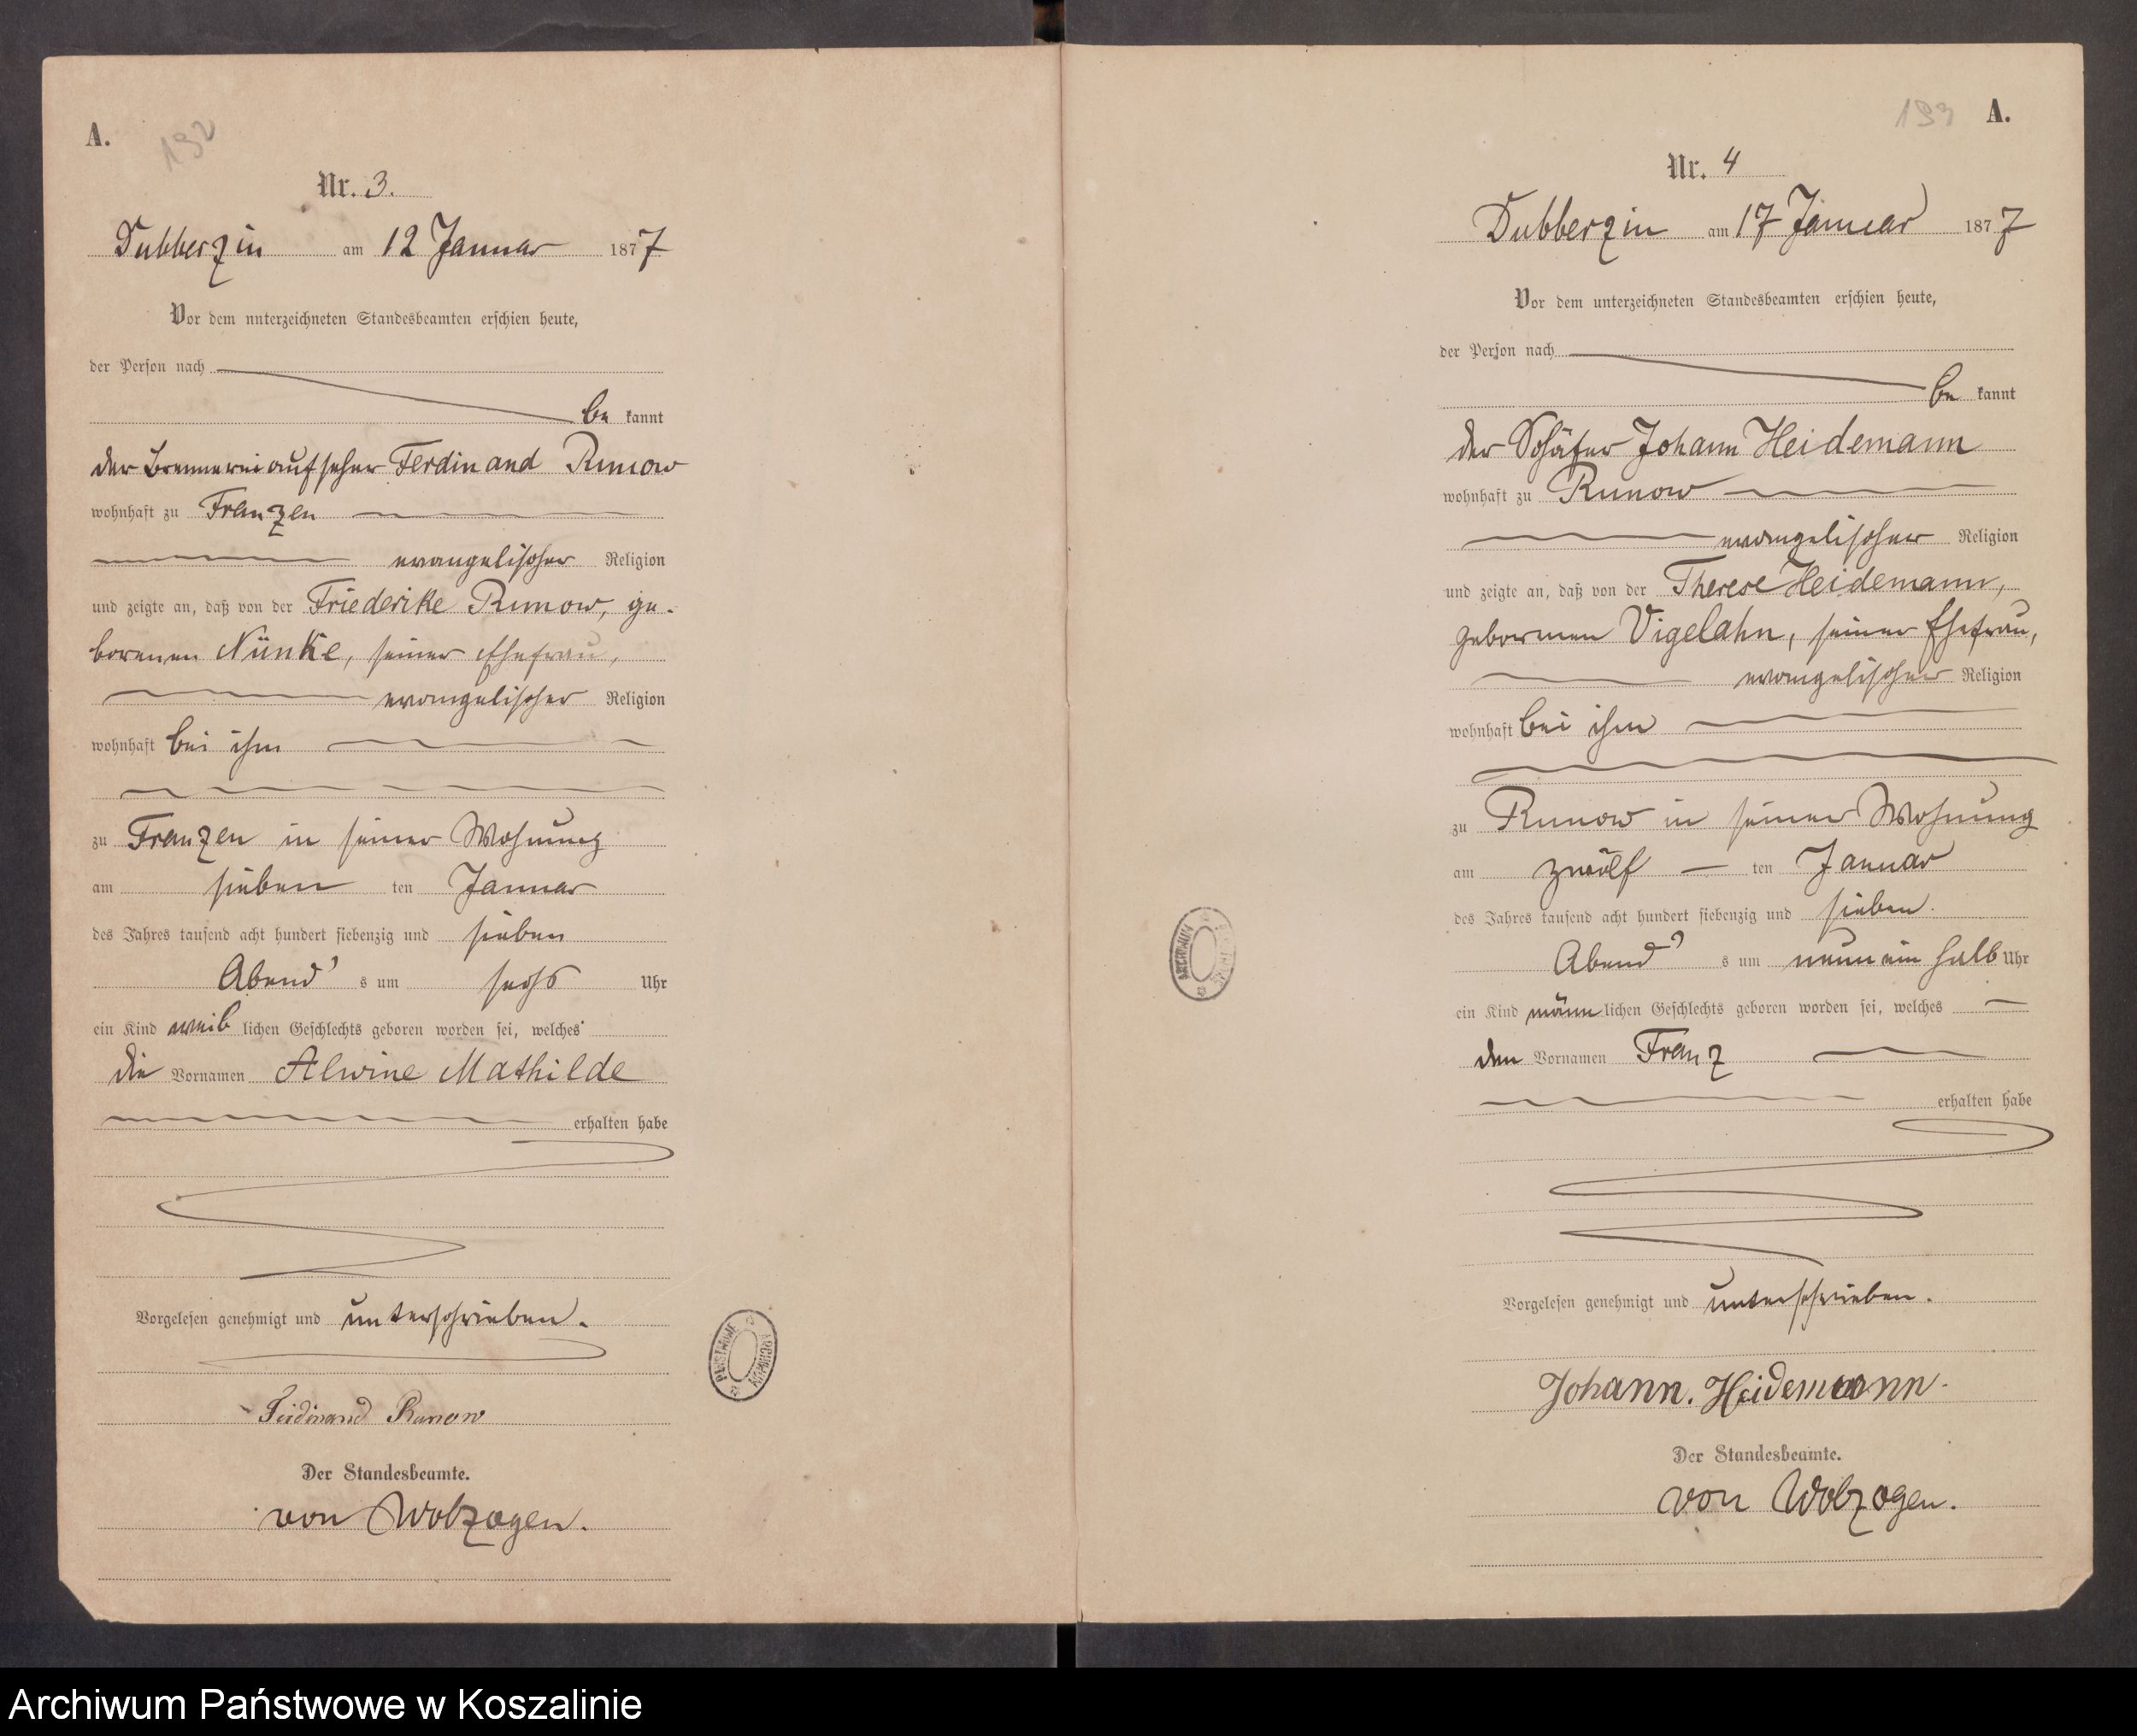 A.
192
Nr. 3.
Dubberzin am 12 Januar 1877
Vor dem nnterzeichneten Standesbeamten erschien heute,
der Person nach
be kannt
der Brennereiaufseher Ferdinand Runow
wohnhaft zu Franzen
evangelischer Religion
und zeigte an, daß von der Friederike Runow, ge-
borenen Nünke, seiner Ehefrau,
evangelischer Religion
wohnhaft bei ihm
zu Franzen in seiner Wohnung
am sieben ten Januar
des Jahres tausend acht hundert siebenzig und sieben
Abend s um sechs Uhr
ein Kind weib lichen Geschlechts geboren worden sei, welches
die Vornamen Alwine Mathilde
erhalten habe
Vorgelesen genehmigt und unterschrieben.
Ferdinand Runow
Der Standesbeamte.
von Wolzogen.
PAŃSTWOWE ARCHIWUM
193 A.
Nr. 4
Dubberzin am 17 Januar 1877
Vor dem unterzeichneten Standesbeamten erschien heute,
der Person nach
be kannt
der Schäfer Johann Heidemann
wohnhaft zu Runow
evangelischer Religion
und zeigte an, daß von der Therese Heidemann,
geborenen Vigelahn, seiner Ehefrau,
evangelischer Religion
wohnhaft bei ihm
zu Runow in seiner Wohnung
am zwölf ten Januar
des Jahres tausend acht hundert siebenzig und sieben
Abend s um neun ein halb Uhr
ein Kind männ lichen Geschlechts geboren worden sei, welches
den Vornamen Franz
erhalten habe
Vorgelesen genehmigt und unterschrieben.
Johann. Heidemann.
Der Standesbeamte.
von Wolzogen.
ARCHIWUM
Archiwum Państwowe w Koszalinie